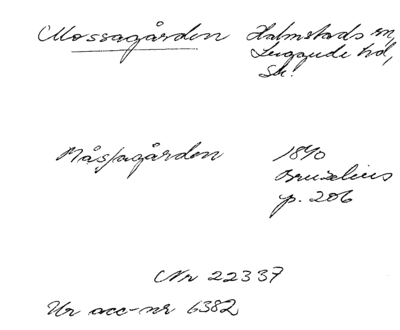 Mossagården Halmstads sn,
Luggude hd,
Sk.
Måssagården 1890
Bruzelius
p. 206
Nr 22337
Ur acc-nr 6382